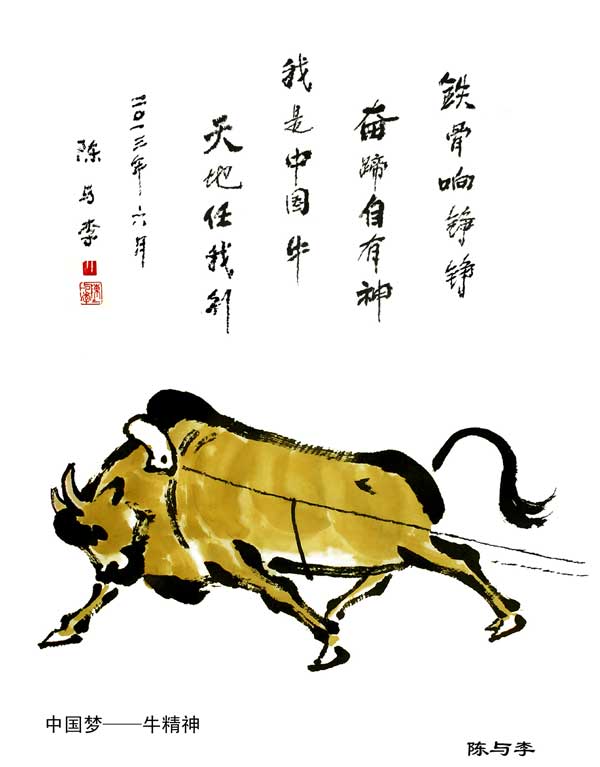 鉄骨响铮铮
奋蹄自有神
我是中国牛
天地任我行
二〇一三年六月
陈与李
中国梦——牛精神
陈与李